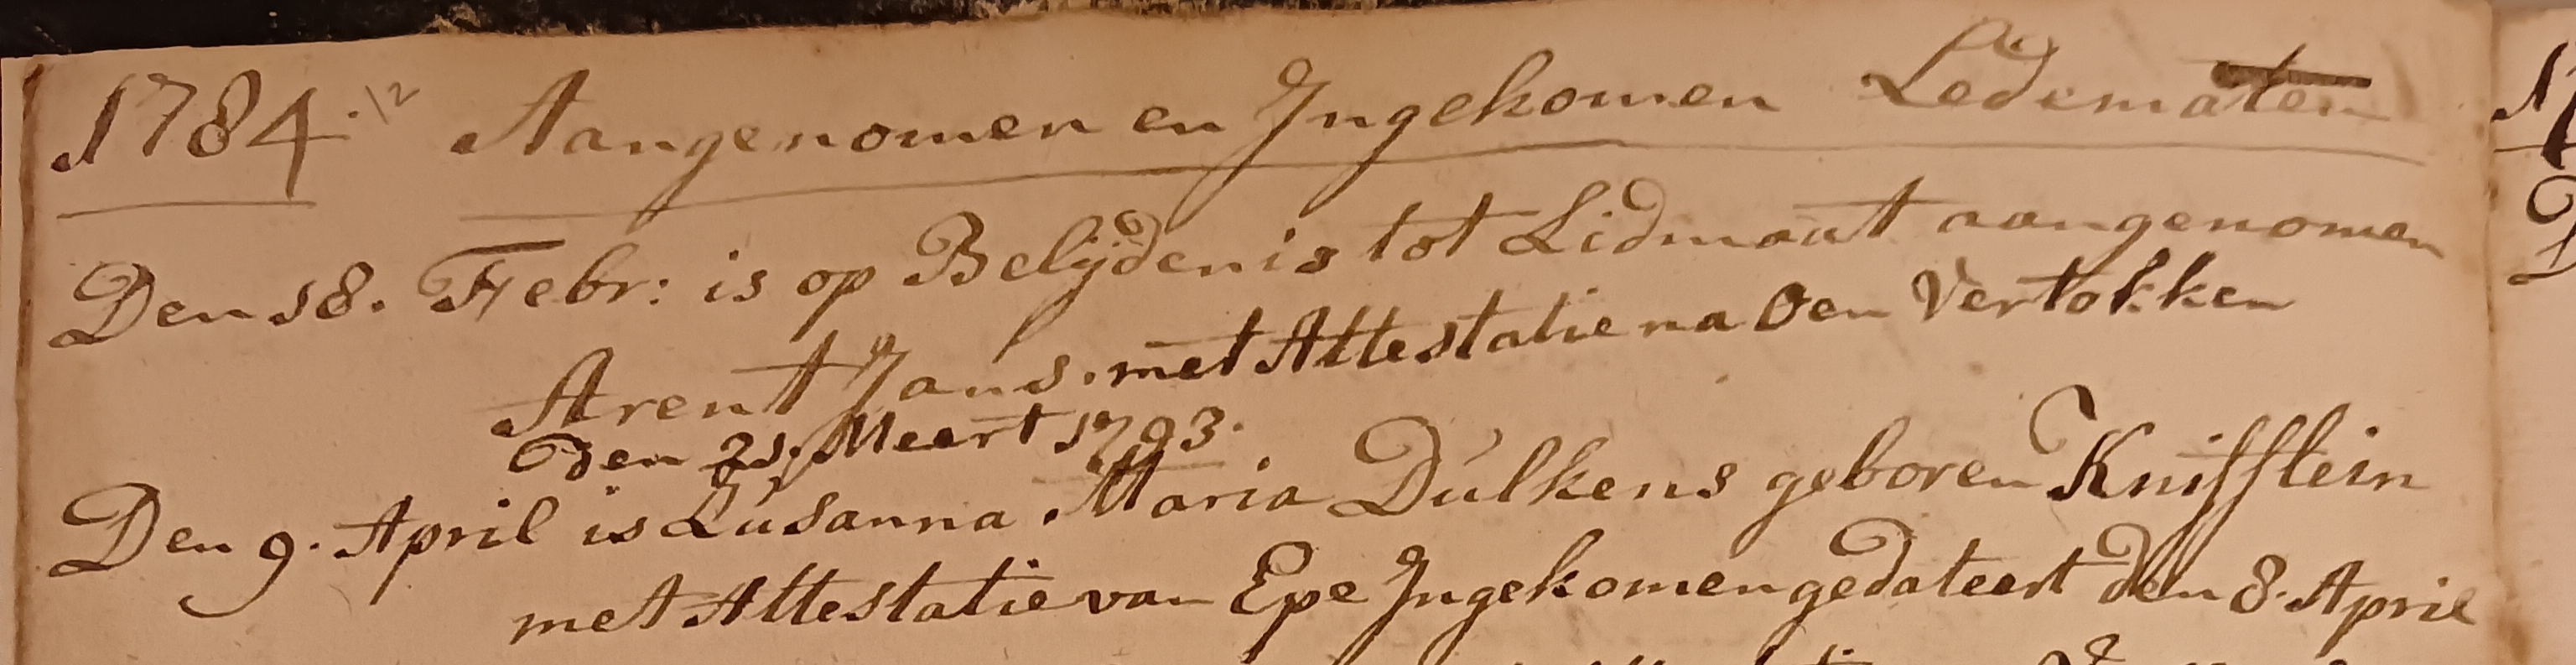 1784 12 Aangenomen en Ingekomen Ledematen
Den 18. Febr: is op Belijdenis tot Lidmaat aangenomen
Arent Jans. met Attestatie na Den Vertokken
Den 21. Meert 1793.
Den 9. April is Susanna Maria Dulkens geboren Knifflein
met Attestatie van Epe Ingekomen gedateert den 8. April